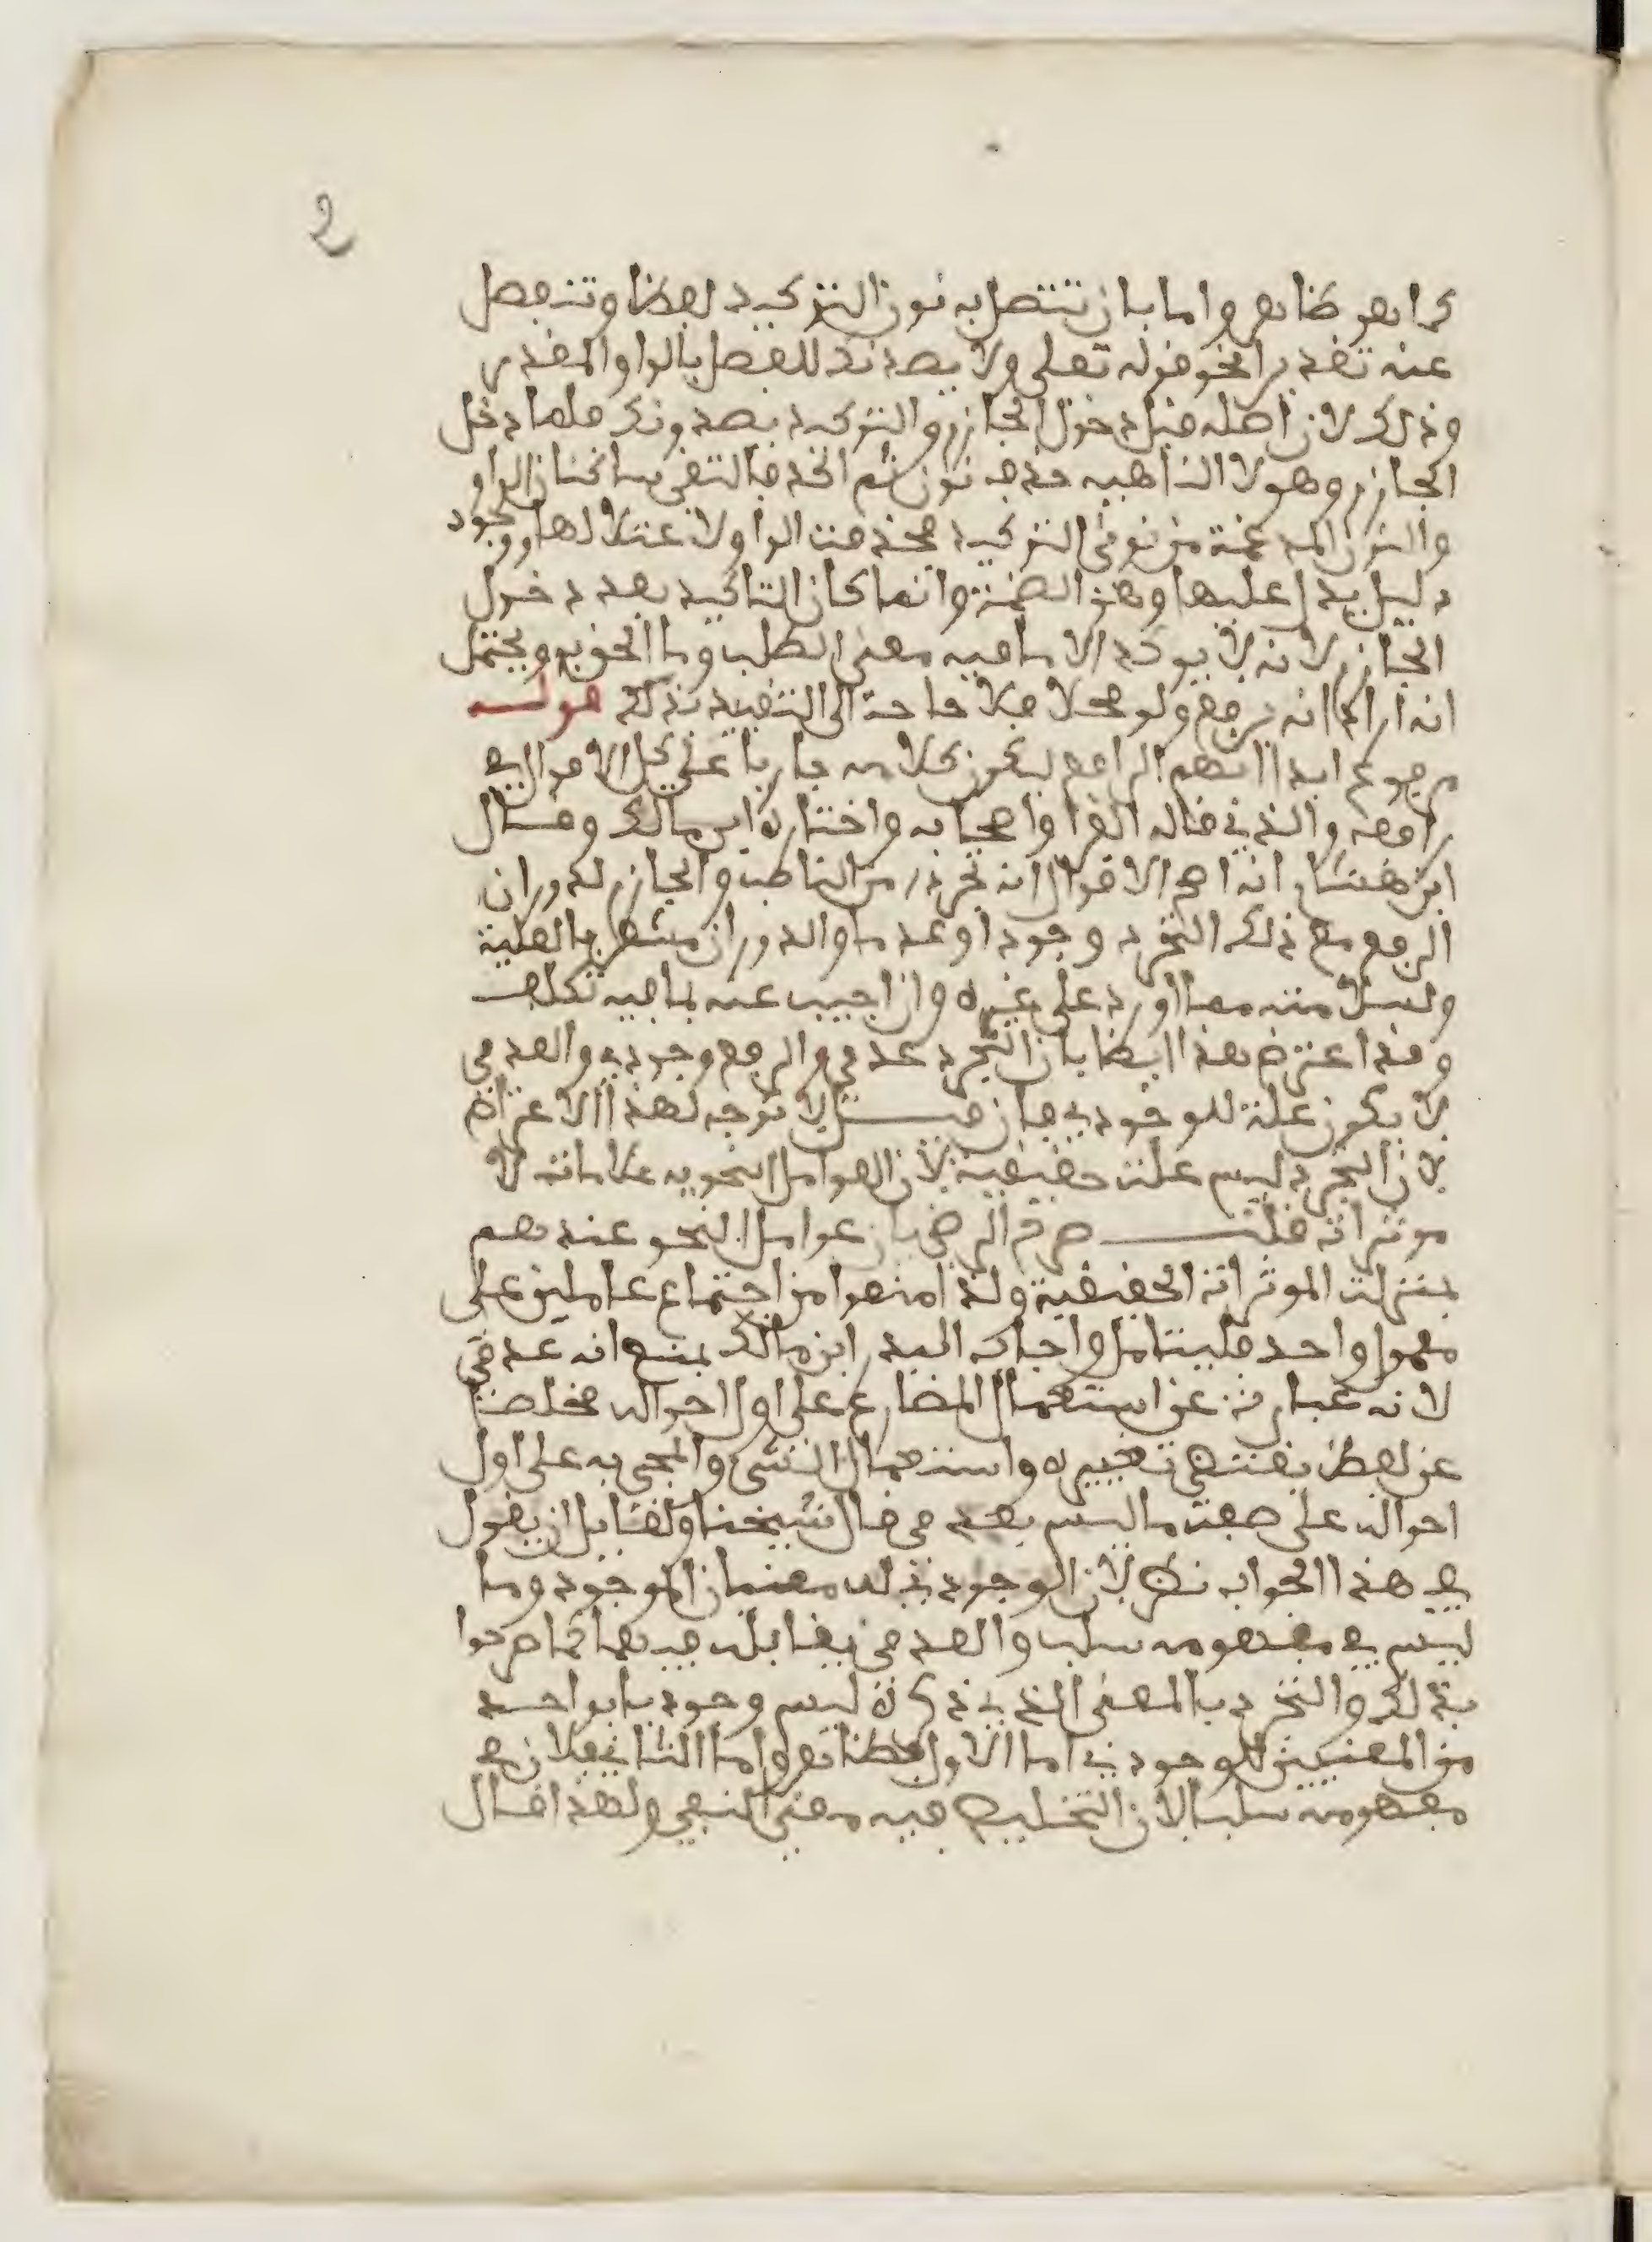 2
كما هو ظاهر واما بان تتصل به نون التوكيد لفظا وتنفصل
عنه تقديرا نحو قوله تعلى ولا يصدنك للفصل بالواو المقدر
وذلك لان اصله قبل دخول الجازم والتوكيد يصدونك فلما دخل
الجازم وهو لا الناهيه حذف نون ثم اكد فالتقى ساكنان الواو
والنون المدغمة من نوني التوكيد فحذفت الواو لاعتلالها ووجود
دليل يدل عليها وهو الضمة وانما كان التاكيد بعد دخول
الجازم لانه لا يوكد الا ما فيه معنى الطلب وما الحق به ويحتمل
انه اراد انه يرفع ولو محلا فلا حاجة الى التقييد بذلك قولـه
مرفوع ابدا ابهم الرافع ليكون كلامه جاريا على كل الاقوال في
رافعه والذي قاله الفرا واصحابه واختاره ابن مالك وقال
ابن هشام انه اصح الاقوال انه تجرده من الناصب والجازم لدوران
الرفع مع ذلك التجرد وجودا وعدما والدوران مشعر بالعلية
ولسلامته مما اورد على غيره وان اجيب عنه بما فيه تكلف
وقد اعترض هذا ايضا بان التجرد عدمي والرفع وجودي والعدمي
لا يكون علة للوجودي فان قـلت لا توجه لهذا الاعتراض
لان التجرد ليس علت حقيقية لان العوامل النحويه علامات لا
موثرات قلت صرح الرضي بان عوامل النحو عندهم
بمنزلت الموثرات الحقيقية ولذا منعوا من اجتماع عاملين على
معمول واحد فليتامل واجاب البدر ابن مالك بمنع انه عدمي
لانه عبارة عن استعمال المضارع على اول احواله مخلصا
عن لفظ يقتضي تغييره واستعمال الشي والمجي به على اول
احواله على صفت ما ليس بعدمي قال شيخنا ولقايل ان يقول
في هذا الجواب نظر لان الوجودي له معنيان الموجود وما
ليس في مفهومه سلب والعدمي يقابله فيهما كما صرحوا
بذلك والتجرد بالمعنى الذي ذكره ليس وجوديا بواحد
من المعنيين للوجودي اما الاول فظاهر واما الثاني فلان في
مفهومه سلبا لان التخليص فيه معنى النفي ولهذا قال